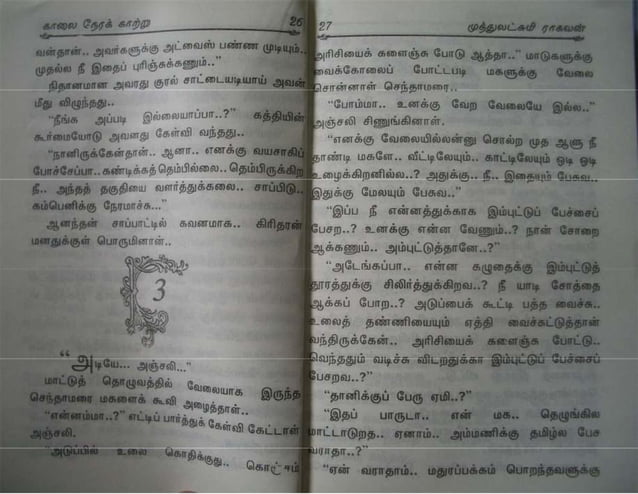 காலை நேரக் காற்று 26
வன்தான்.. அவர்களுக்கு அட்வைஸ் பண்ண முடியும்..
முதல்ல நீ இதைப் புரிஞ்சுக்கணும்.."
நிதானமான அவரது குரல் சாட்டையடியாய் அவன்
மீது விழுந்தது..
"நீங்க அப்படி இல்லையாப்பா..?" கத்தியின்
கூர்மையோடு அவனது கேள்வி வந்தது..
"நானிருக்கேன்தான்.. ஆனா.. எனக்கு வயசாகிப்
போச்சேப்பா.. கண்டிக்கத் தெம்பில்லை.. தெம்பிருக்கிற
நீ.. அந்தத் தகுதியை வளர்த்துக்கலை.. சாப்பிடு..
கம்பெனிக்கு நேரமாச்சு..."
ஆனந்தன் சாப்பாட்டில் கவனமாக.. கிரிதரன்
மனதுக்குள் பொருமினான்..
3
"அடியே... அஞ்சலி..."
மாட்டுத் தொழுவத்தில் வேலையாக இருந்த
செந்தாமரை மகளைக் கூவி அழைத்தாள்..
"என்னம்மா..?" எட்டிப் பார்த்துக் கேள்வி கேட்டாள்
அஞ்சலி.
"அடுப்பில் உலை கொதிக்குது.. கொட்டாம்
27 முத்துலட்சுமி ராகவன்
அரிசியைக் களைஞ்சு போடு ஆத்தா.." மாடுகளுக்கு
வைக்கோலைப் போட்டபடி மகளுக்கு வேலை
சொன்னாள் செந்தாமரை..
"போம்மா.. உனக்கு வேற வேலையே இல்ல.."
அஞ்சலி சிணுங்கினாள்.
"எனக்கு வேலையில்லன்னு சொல்ற முத ஆளு நீ
தாண்டி மகளே.. வீட்டிலேயும்.. காட்டிலேயும் ஓடி ஓடி
உழைக்கிறனில்ல..? அதுக்கு.. நீ.. இதையும் பேசுவ..
இதுக்கு மேலயும் பேசுவ.."
"இப்ப நீ என்னத்துக்காக இம்புட்டுப் பேச்சைப்
பேசற..? உனக்கு என்ன வேணும்..? நான் சோறை
ஆக்கணும்.. அம்புட்டுத்தானே..?"
"அடேங்கப்பா.. என்ன கழுதைக்கு இம்புட்டுத்
தூரத்துக்கு சிலிர்த்துக்கிறவ..? நீ யாடி சோத்தை
ஆக்கப் போற..? அடுப்பைக் கூட்டி பத்த வைச்சு..
உலைத் தண்ணியையும் ஏத்தி வைச்சுட்டுத்தான்
வந்திருக்கேன்.. அரிசியைக் களைஞ்சு போட்டு..
வெந்ததும் வடிச்சு விடறதுக்கா இம்புட்டுப் பேச்சைப்
பேசறவ..?"
"தானிக்குப் பேரு ஏமி..?"
"இதப் பாருடா.. என் மக.. தெழுங்கில
மாட்டாடுறத.. ஏனாம்.. அம்மணிக்கு தமிழ்ல பேச
வராதா..?"
"ஏன் வராதாம்.. மதுரப்பக்கம் பொறந்தவளுக்கு